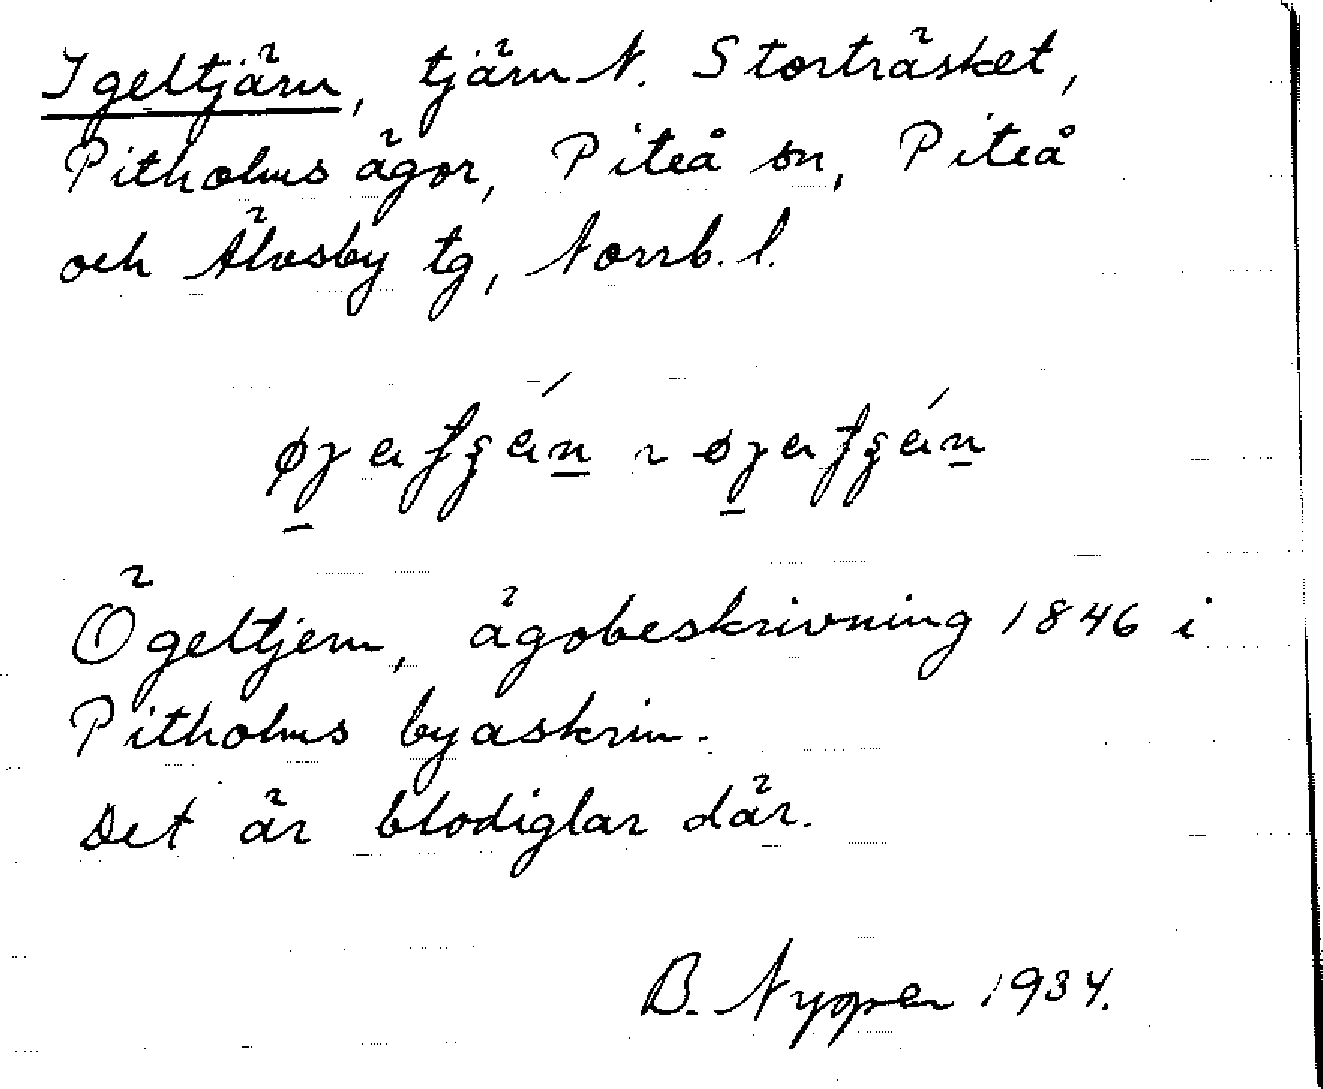 Igeltjärn, tjärn N. Storträsket,
Pitholms ägor, Piteå sn, Piteå
och Älvsby tg, Norrb. l.
Ögeltjern, ägobeskrivning 1846 i
Pitholms byaskrin.
Det är blodiglar där.
B. Nygren 1934.